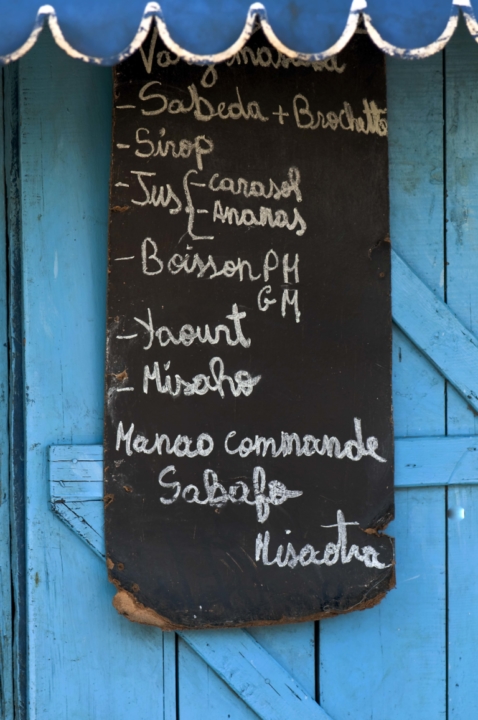 Vary
- Sabeda + Brochette
- Sirop
- Jus { - carasol
- Ananas
- Boisson PM
GM
- Yaourt
- Misaho
Manao commande
Sabafo
Misaotra